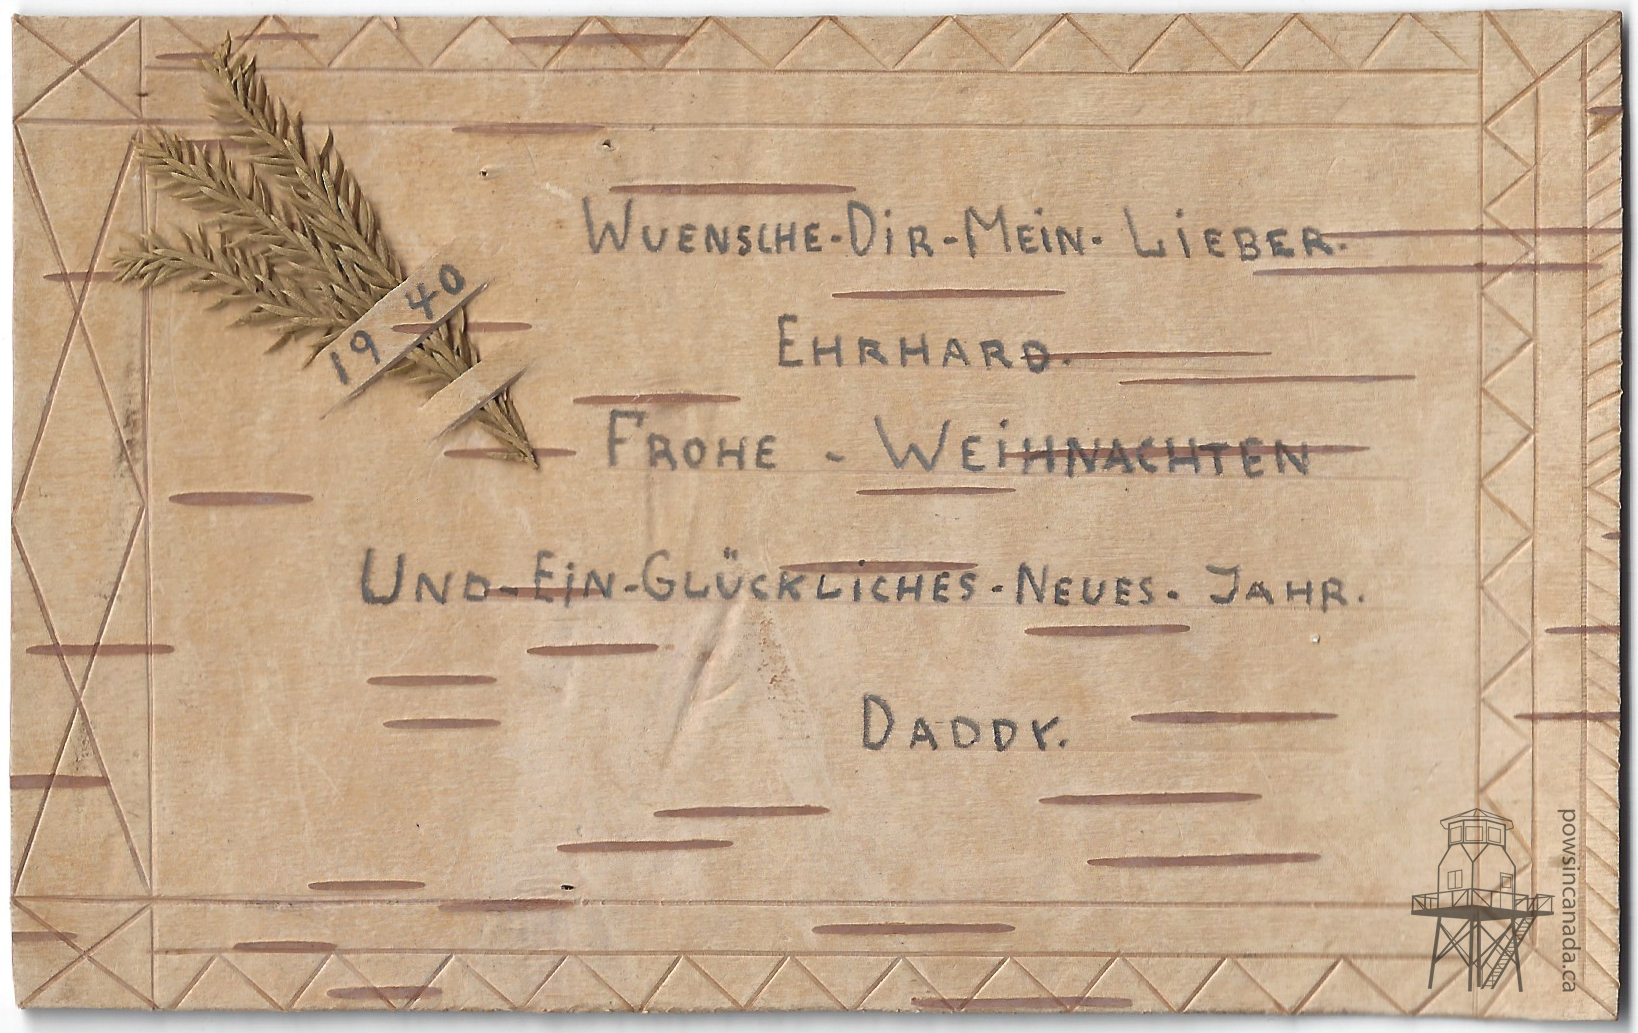 19 40
WUENSCHE-DiR-MEiN- LiEBER.
EHRHARD.
FROHE - WEiHNACHTEN
UND-EiN-GLÜCKLiCHES-NEUES. JAHR.
DADDY.
powsincanada.ca